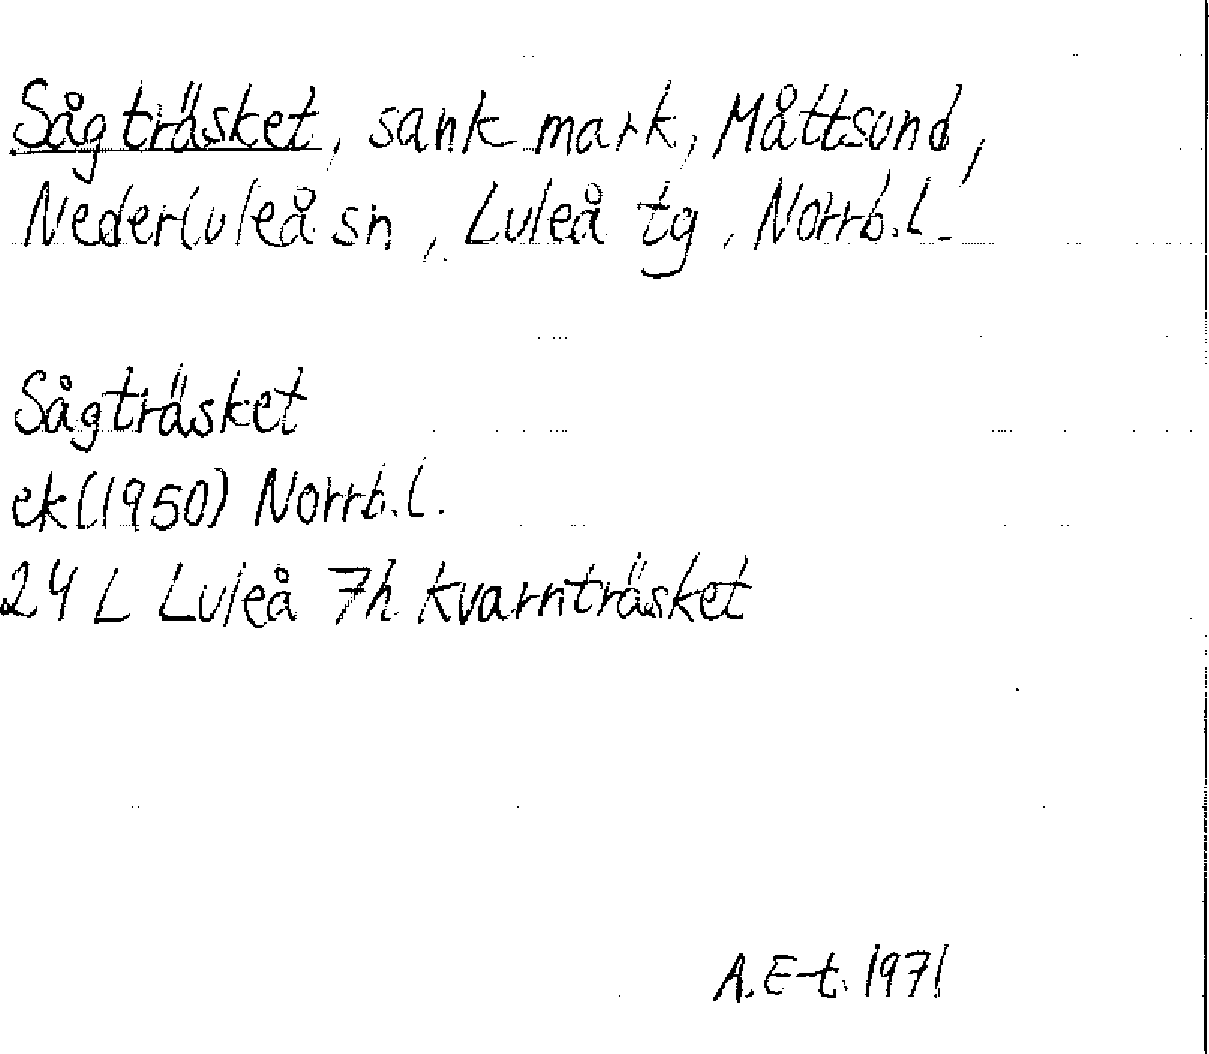 Sågträsket, sank mark, Måttsund,
Nederluleå sn, Luleå tg, Norrb.l.
Sågträsket
ek(1950) Norrb.l.
24 L Luleå 7h kvarnträsket
A.E-t. 1971